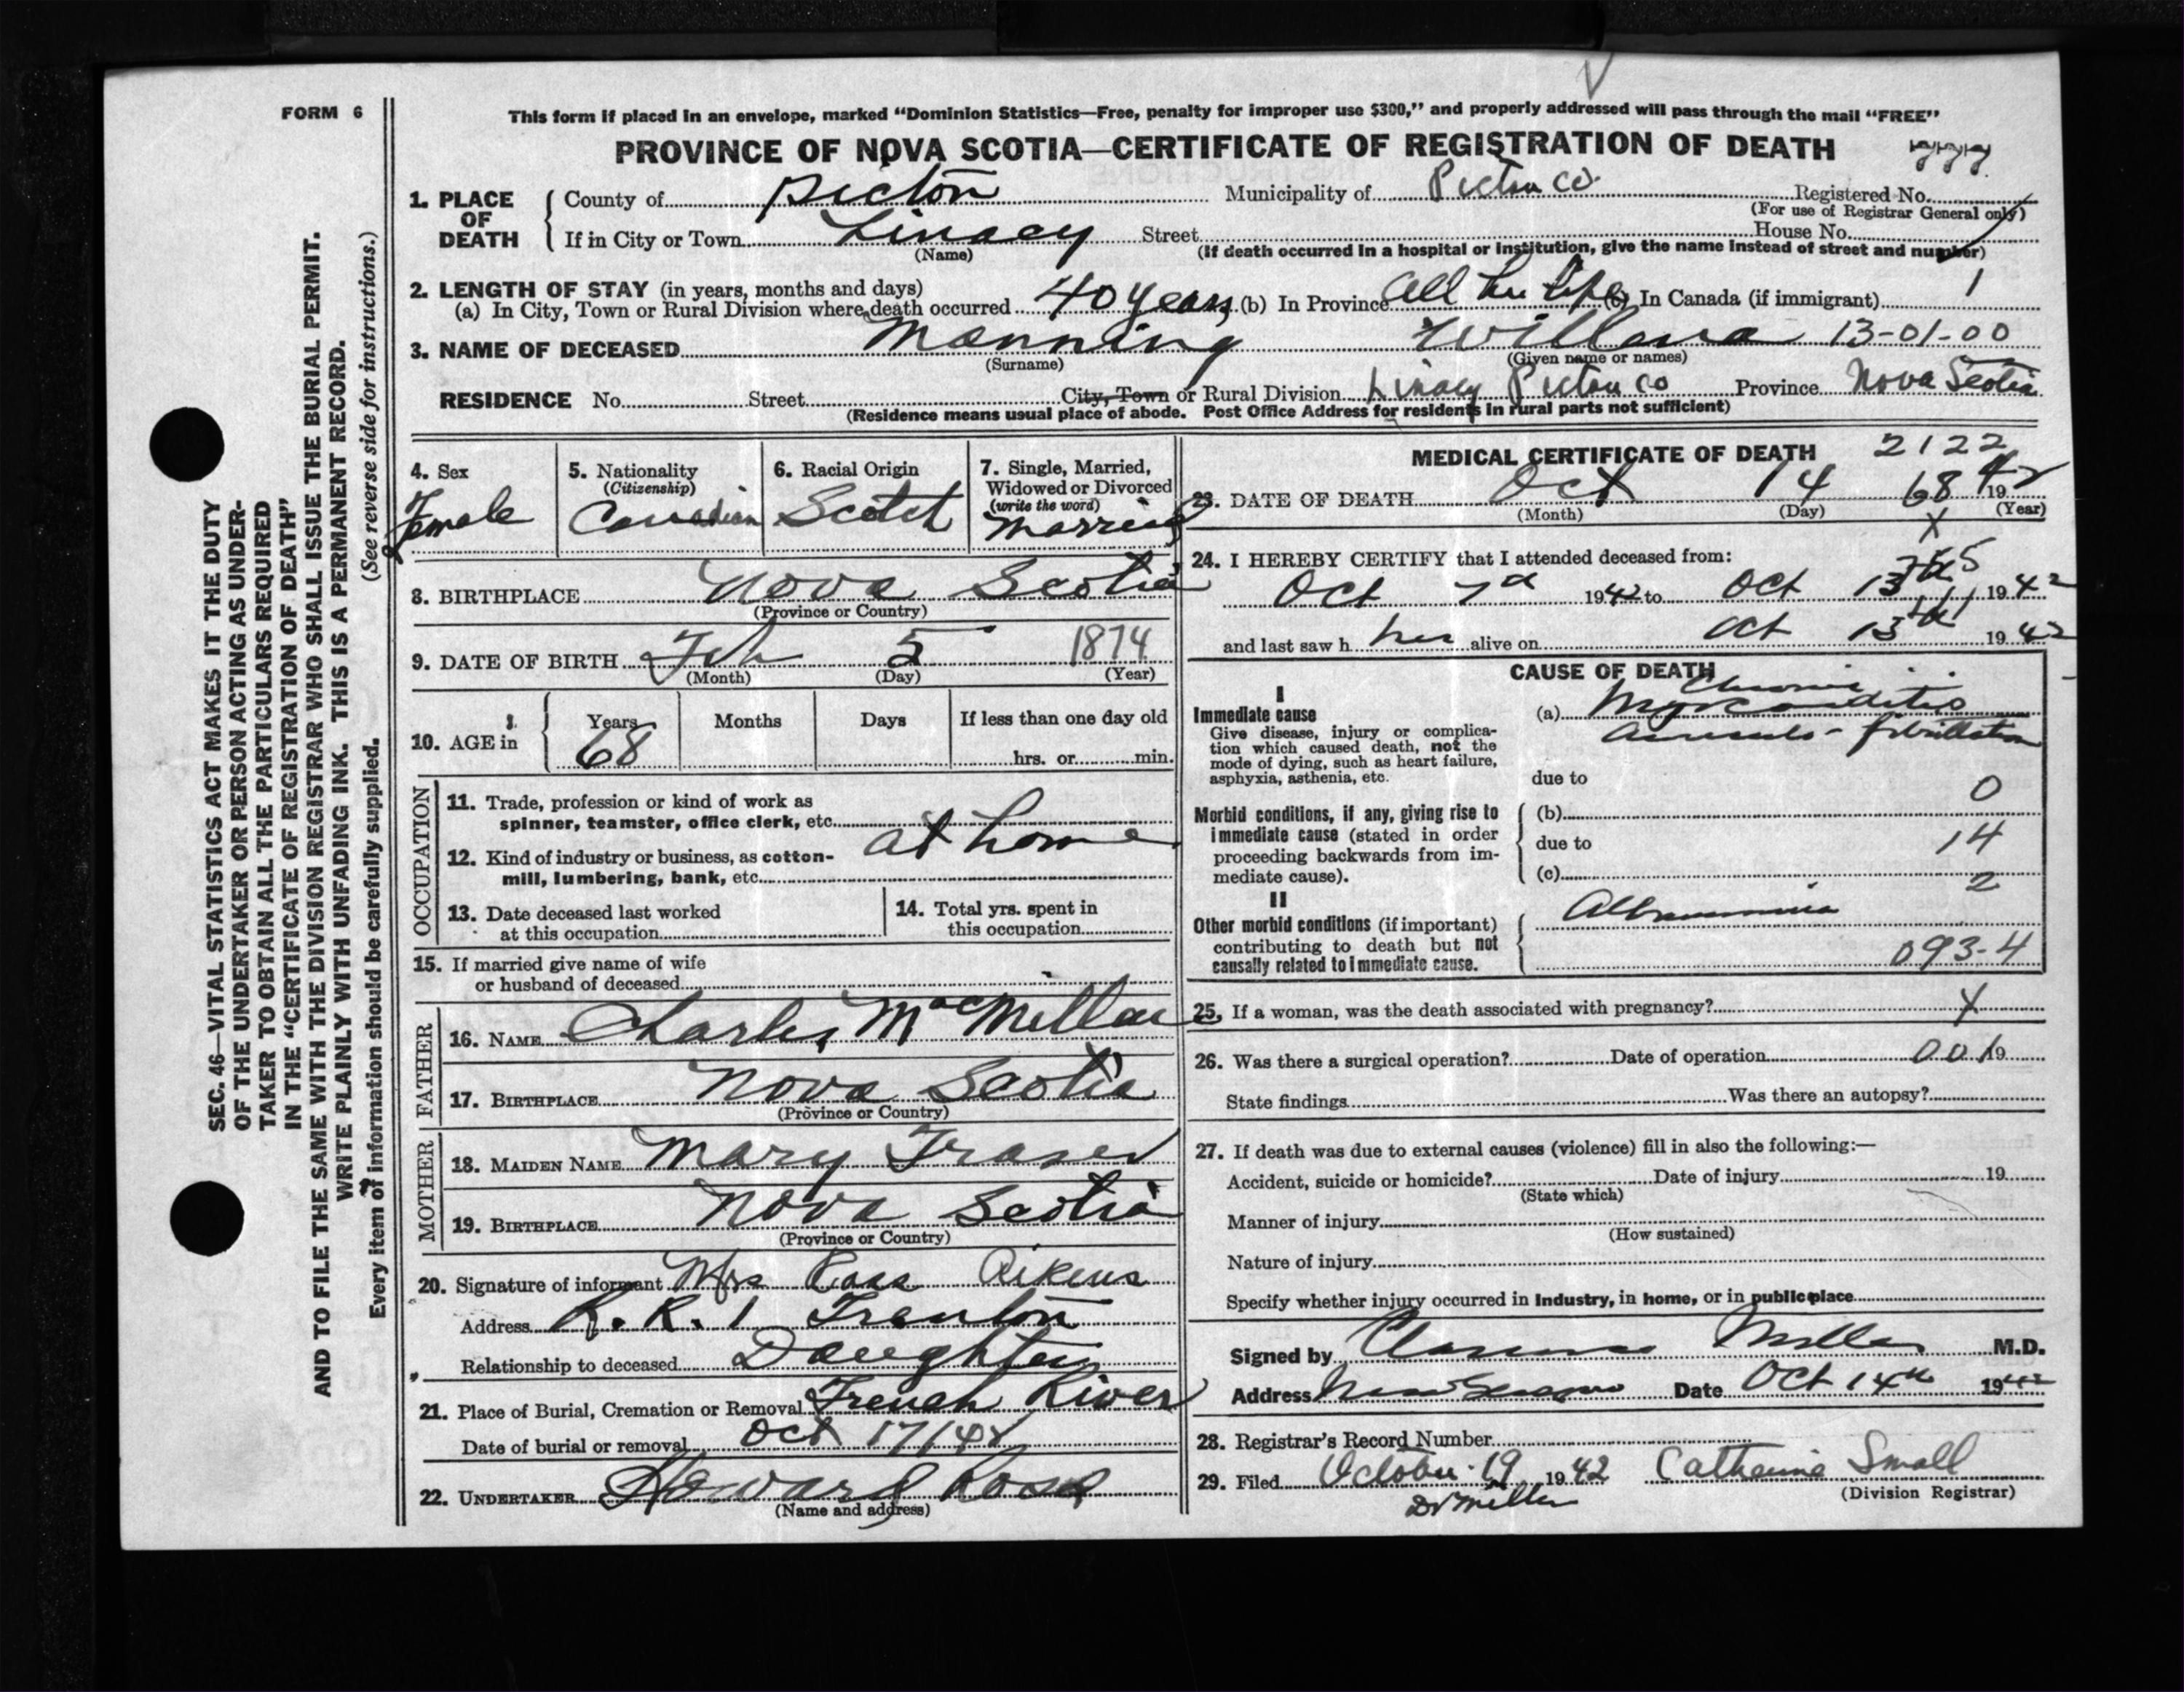 FORM 6
This form if placed in an envelope, marked "Dominion Statistics—Free, penalty for improper use $300," and properly addressed will pass through the mail "FREE"
PROVINCE OF NOVA SCOTIA—CERTIFICATE OF REGISTRATION OF DEATH
1. PLACE OF DEATH
County of Pictou Municipality of Pictou Co. Registered No.
(For use of Registrar General only)
If in City or Town Linacy Street House No.
(Name) (If death occurred in a hospital or institution, give the name instead of street and number)
2. LENGTH OF STAY (in years, months and days)
(a) In City, Town or Rural Division where death occurred 40 years (b) In Province All her life (c) In Canada (if immigrant) 1
3. NAME OF DECEASED Manning Willena 13-01-00
(Surname) (Given name or names)
RESIDENCE No. Street City, Town or Rural Division Linacy Pictou Co Province Nova Scotia
(Residence means usual place of abode. Post Office Address for residents in rural parts not sufficient)
4. Sex
Female
5. Nationality
(Citizenship)
Canadian
6. Racial Origin
Scotch
7. Single, Married,
Widowed or Divorced
(write the word)
Married
8. BIRTHPLACE Nova Scotia
(Province or Country)
9. DATE OF BIRTH Feb 5 1874
(Month) (Day) (Year)
10. AGE in
Years Months Days If less than one day old
68 hrs. or min.
OCCUPATION
11. Trade, profession or kind of work as
spinner, teamster, office clerk, etc. at home
12. Kind of industry or business, as cotton-
mill, lumbering, bank, etc.
13. Date deceased last worked
at this occupation
14. Total yrs. spent in
this occupation
15. If married give name of wife
or husband of deceased
FATHER
16. NAME Charles MacMillan
17. BIRTHPLACE Nova Scotia
(Province or Country)
MOTHER
18. MAIDEN NAME Mary Fraser
19. BIRTHPLACE Nova Scotia
(Province or Country)
20. Signature of informant Mrs Ross Aikens
Address R.R. 1 Trenton
Relationship to deceased Daughter
21. Place of Burial, Cremation or Removal French River
Date of burial or removal Oct 17/42
22. UNDERTAKER Howard Ross
(Name and address)
MEDICAL CERTIFICATE OF DEATH 2122
23. DATE OF DEATH Oct 14 68 1942
(Month) (Day) (Year)
X
24. I HEREBY CERTIFY that I attended deceased from:
Oct 1942 to Oct 13th 1942
and last saw her alive on Oct 13th 1942
CAUSE OF DEATH
I
Immediate cause
Give disease, injury or complica-
tion which caused death, not the
mode of dying, such as heart failure,
asphyxia, asthenia, etc.
Chronic
(a) Myocarditis
fibrillation
due to
0
Morbid conditions, if any, giving rise to
immediate cause (stated in order
proceeding backwards from im-
mediate cause).
(b)
due to 14
(c)
2
II
Other morbid conditions (if important)
contributing to death but not
causally related to immediate cause.
Albuminuria
093-4
25. If a woman, was the death associated with pregnancy? X
26. Was there a surgical operation? Date of operation 001 19
State findings Was there an autopsy?
27. If death was due to external causes (violence) fill in also the following:—
Accident, suicide or homicide? Date of injury 19
(State which)
Manner of injury
(How sustained)
Nature of injury
Specify whether injury occurred in industry, in home, or in public place
Signed by Clarence Miller M.D.
Address New Glasgow Date Oct 14th 1942
28. Registrar's Record Number
29. Filed October 19 1942 Catherine Small
Dr Miller (Division Registrar)
SEC. 46—VITAL STATISTICS ACT MAKES IT THE DUTY
OF THE UNDERTAKER OR PERSON ACTING AS UNDER-
TAKER TO OBTAIN ALL THE PARTICULARS REQUIRED
IN THE "CERTIFICATE OF REGISTRATION OF DEATH"
AND TO FILE THE SAME WITH THE DIVISION REGISTRAR WHO SHALL ISSUE THE BURIAL PERMIT.
WRITE PLAINLY WITH UNFADING INK. THIS IS A PERMANENT RECORD.
Every item of information should be carefully supplied. (See reverse side for instructions.)